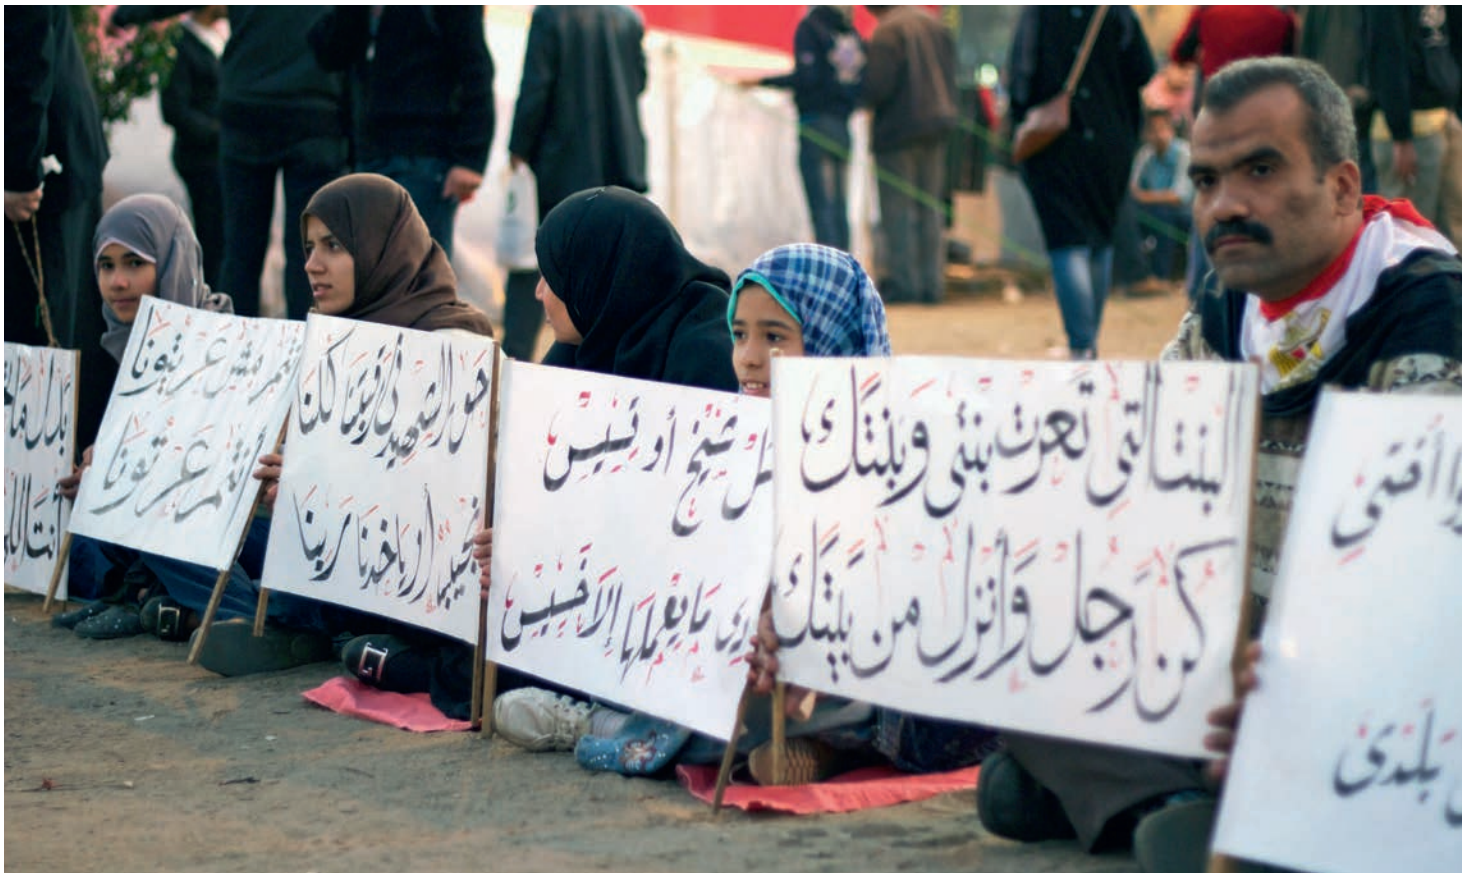 أفتي
بلدي
البنت التي تعرت بنتي وبنتك
كن رجل وأنزل من بيتك
شيخ أو قسيس
ما يعملها إلا خسيس
حق الشهيد في رقبتنا كلنا
نجيبه أو ياخدنا ربنا
مش عريتونا
بدل ما
أنت